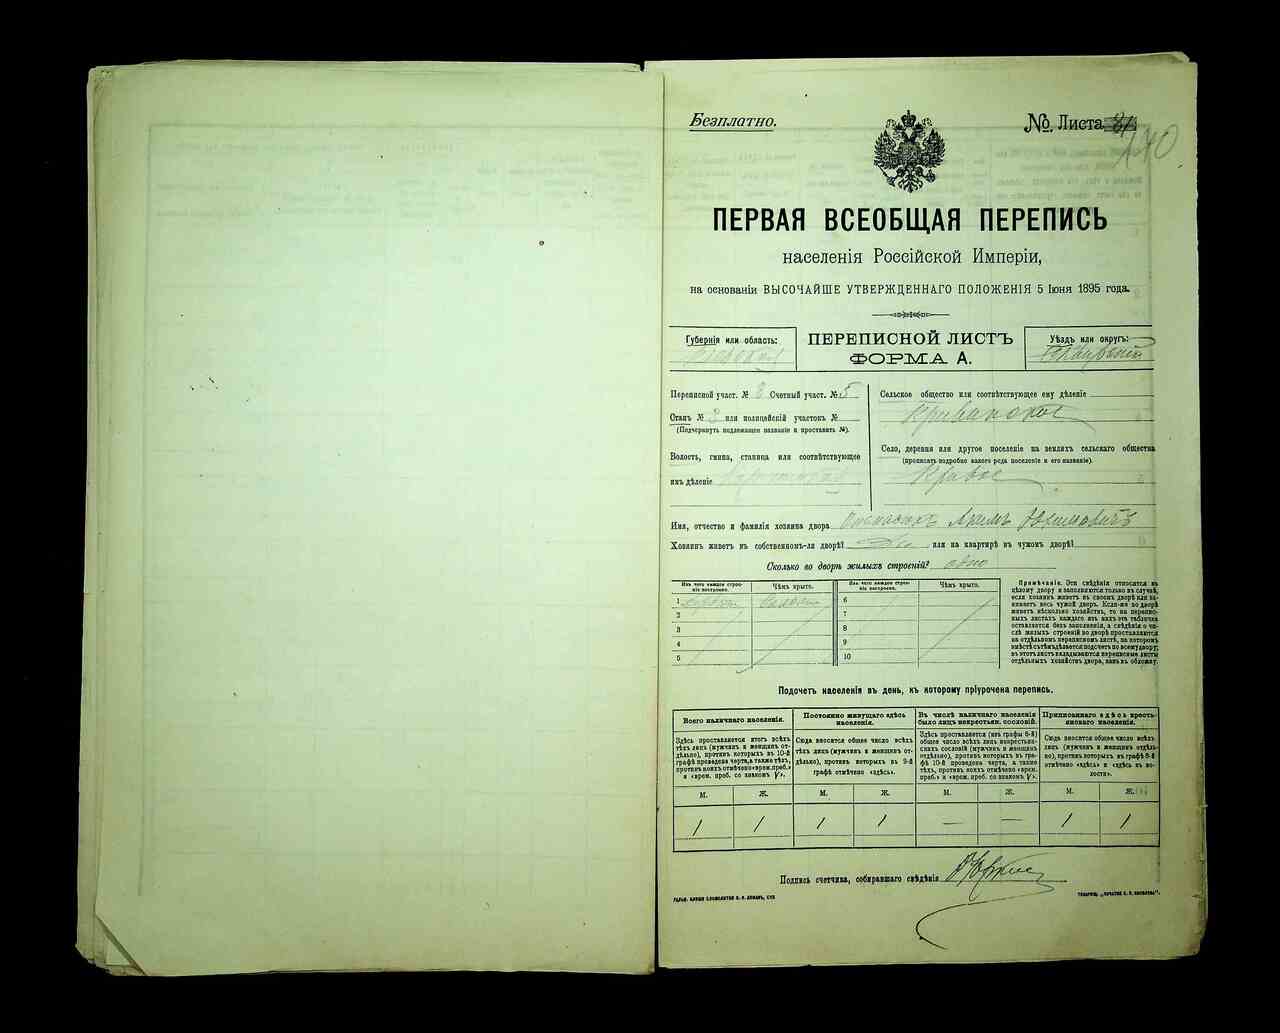 Безплатно.
№ Листа
140
ПЕРВАЯ ВСЕОБЩАЯ ПЕРЕПИСЬ
населенія Россійской Имперіи,
на основаніи ВЫСОЧАЙШЕ УТВЕРЖДЕННАГО ПОЛОЖЕНІЯ 5 Іюня 1895 года.
Губернія или область:
ПЕРЕПИСНОЙ ЛИСТЪ
ФОРМА А.
Уѣздъ или округъ:
Переписной участ. № 8 Счетный участ. № 5
Станъ № 3 или полицейскій участокъ №
(Подчеркнуть подлежащее названіе и проставить №).
Волость, гмина, станица или соотвѣтствующее
имъ дѣленіе
Сельское общество или соотвѣтствующее ему дѣленіе
Криванское
Село, деревня или другое поселеніе на земляхъ сельскаго общества
(прописать подробно какого рода поселеніе и его названіе).
Кривое
Имя, отчество и фамилія хозяина двора Акимъ
Хозяинъ живетъ въ собственномъ-ли дворѣ? или на квартирѣ въ чужомъ дворѣ?
Сколько во дворѣ жилыхъ строеній? одно
Изъ чего каждое строе-
ніе построено.
Чѣмъ крыто.
Изъ чего каждое строе-
ніе построено.
Чѣмъ крыто.
1 6
2 7
3 8
4 9
5 10
Примѣчаніе. Эти свѣдѣнія относятся къ
цѣлому двору и заполняются только въ случаѣ,
если хозяинъ живетъ въ своемъ дворѣ или за-
нимаетъ весь чужой дворъ. Если-же во дворѣ
живетъ нѣсколько хозяйствъ, то на перепис-
ныхъ листахъ каждаго изъ нихъ эта табличка
оставляется безъ заполненія, а свѣдѣнія о чи-
слѣ жилыхъ строеній во дворѣ проставляются
на отдѣльномъ переписномъ листѣ, на которомъ
вмѣстѣ съ тѣмъ дѣлается подсчетъ по всему двору;
въ этотъ листъ вкладываются переписные листы
отдѣльныхъ хозяйствъ двора, какъ въ обложку.
Подсчетъ населенія въ день, къ которому пріурочена перепись.
Всего наличнаго населенія.
Здѣсь проставляется итогъ всѣхъ
тѣхъ лицъ (мужчинъ и женщинъ от-
дѣльно), противъ которыхъ въ 10-й
графѣ проведена черта, а также тѣхъ,
противъ коихъ отмѣчено «врем. преб.»
и «врем. преб. со знакомъ V».
Постоянно живущаго здѣсь
населенія.
Сюда вносится общее число всѣхъ
тѣхъ лицъ (мужчинъ и женщинъ от-
дѣльно), противъ которыхъ въ 9-й
графѣ отмѣчено «здѣсь».
Въ числѣ наличнаго населенія
было лицъ некрестьян. сословій.
Здѣсь проставляется (изъ графы 5-й)
общее число всѣхъ лицъ некрестьян-
скихъ сословій (мужчинъ и женщинъ
отдѣльно), противъ которыхъ въ гра-
фѣ 10-й проведена черта, а также
тѣхъ, противъ коихъ отмѣчено «врем.
преб.» и «врем. преб. со знакомъ V».
Приписаннаго здѣсь кресть-
янскаго населенія.
Сюда вносятся общее число всѣхъ
лицъ (мужчинъ и женщинъ отдѣль-
но), противъ которыхъ въ графѣ 8-й
отмѣчено «здѣсь» и «здѣсь въ во-
лости».
М. Ж. М. Ж. М. Ж. М. Ж.
1 1 1 1 — — 1 1
Подпись счетчика, собиравшаго свѣдѣнія